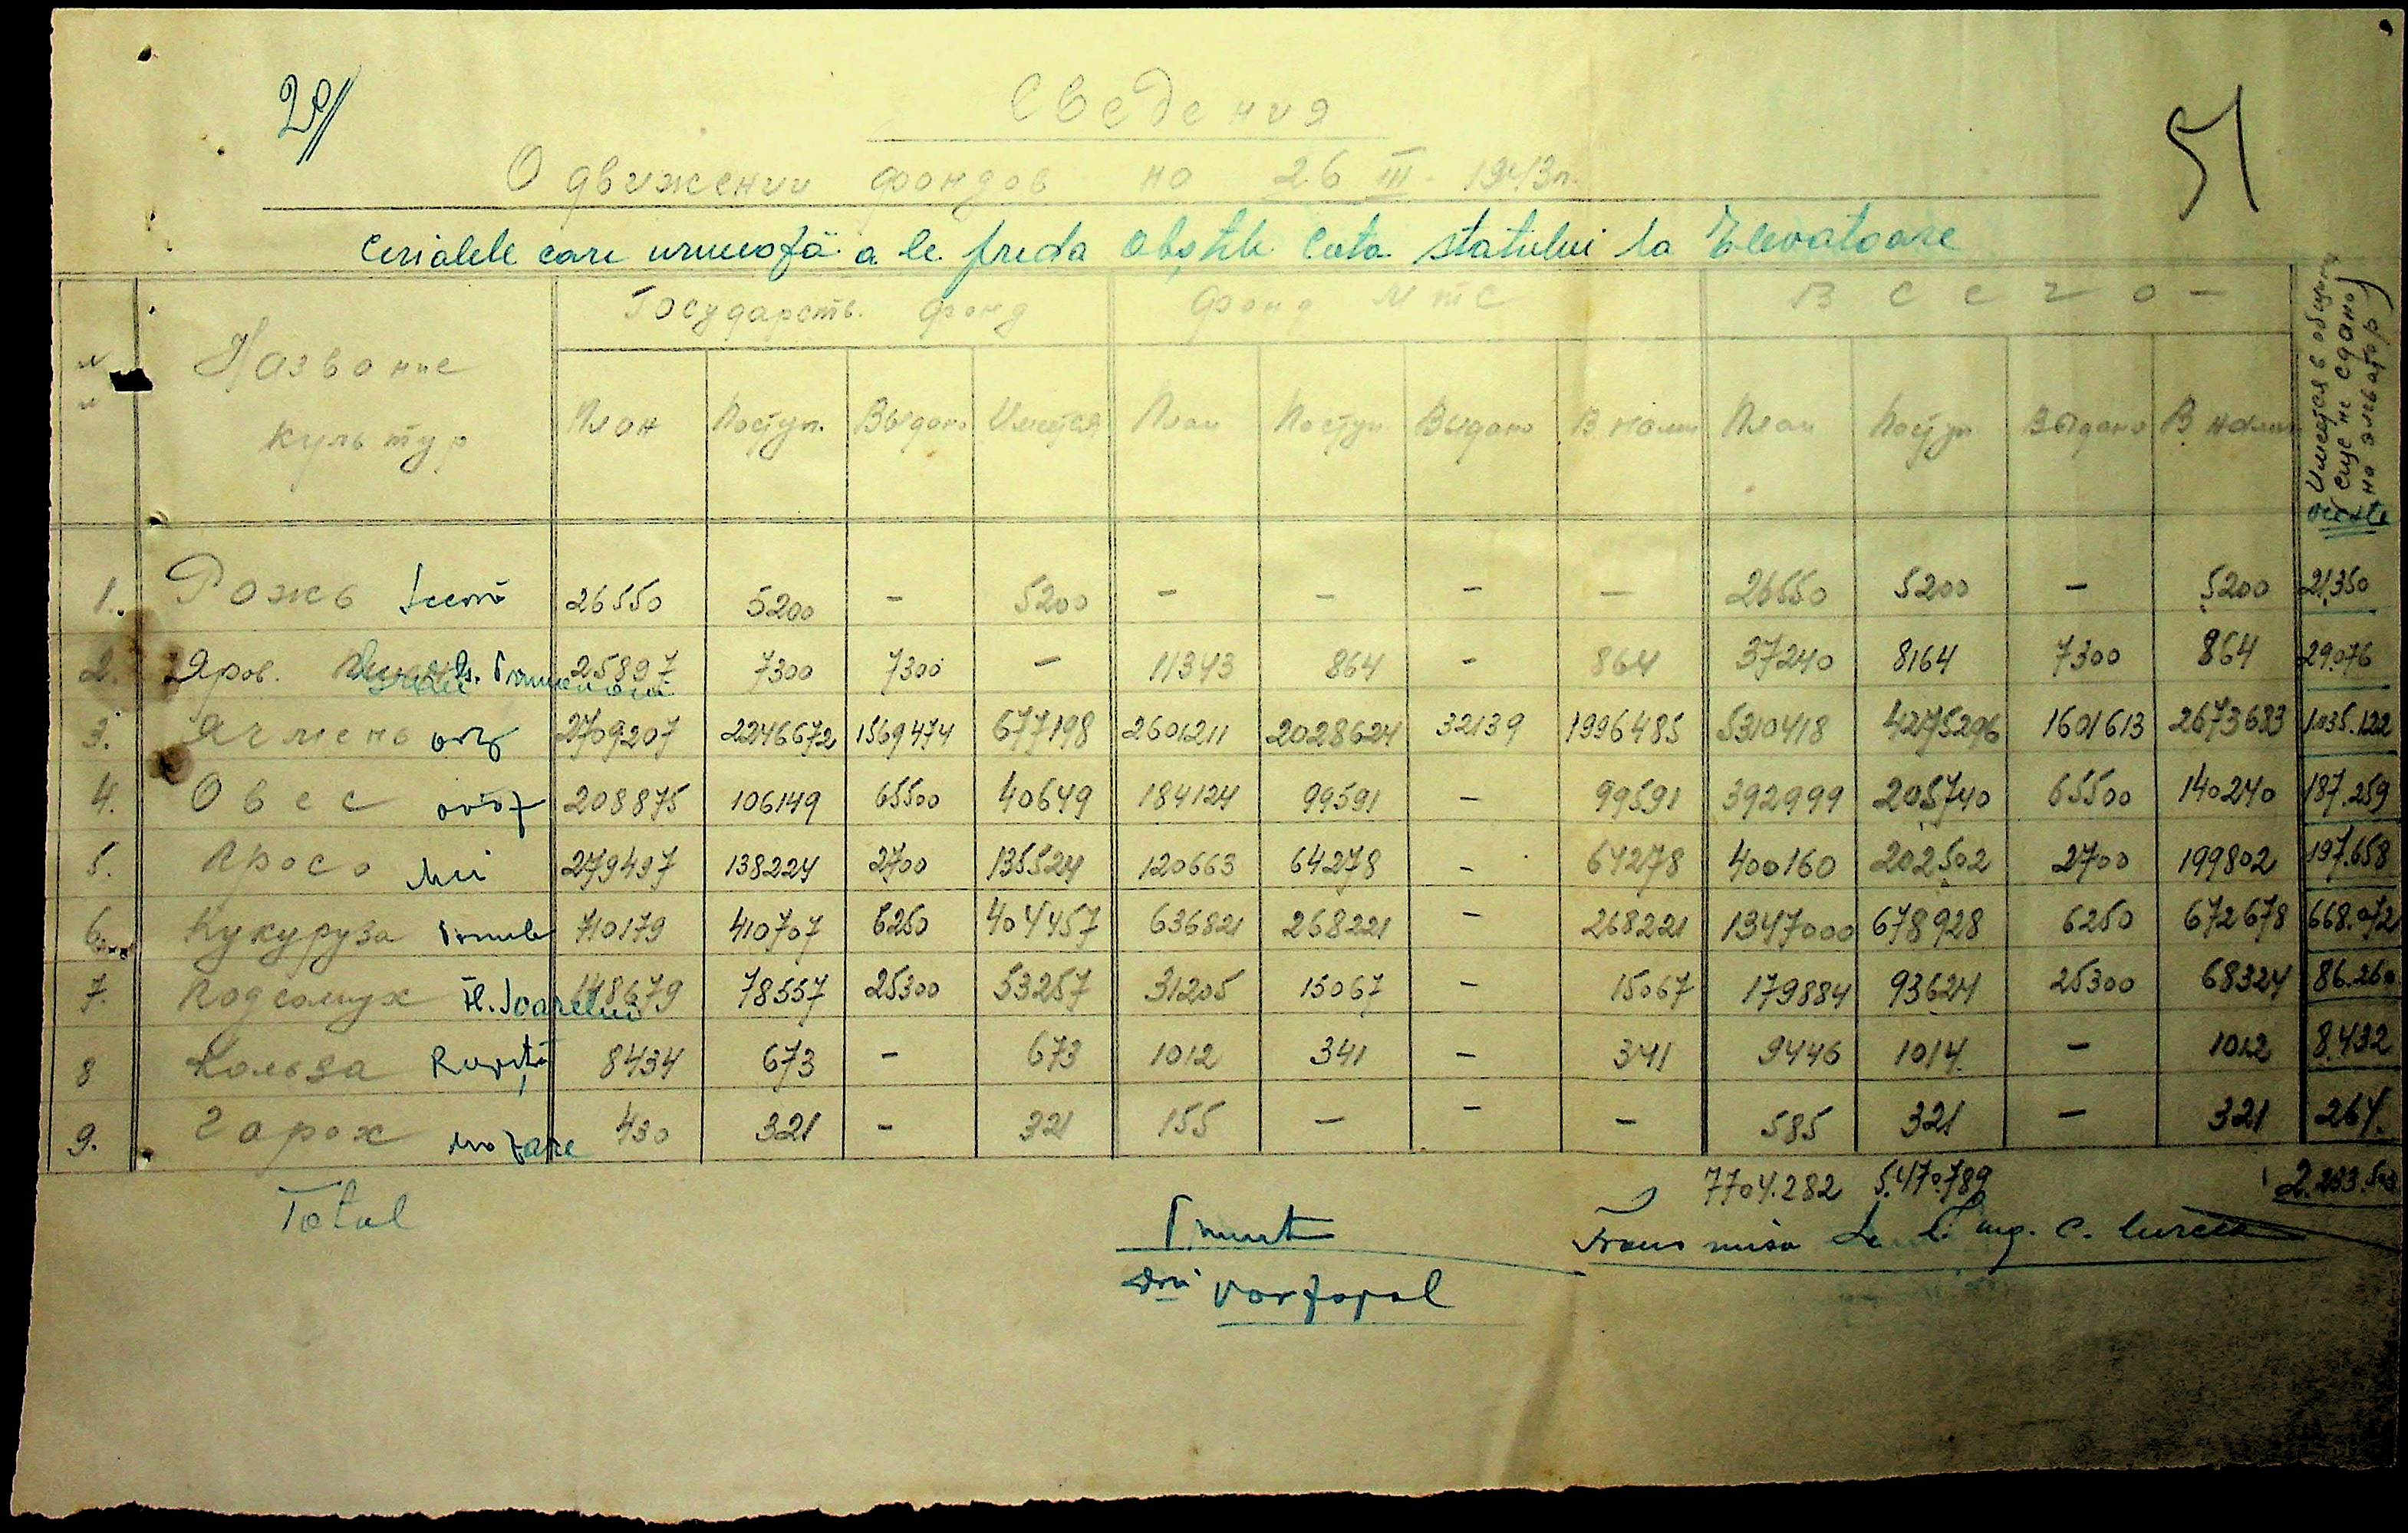 51
Сведения
О движении фондов на 26 III. 1943 г.
Cerialele care urmează a le preda obștile cota statului la Elevatoare
№ Название культур Государств. фонд Фонд МТС Всего —
Имеется в общинах еще не сдано на элеватор
План Поступ. Выдано Имеется План Поступ. Выдано В налич План Поступ Выдано В налич
1. Рожь Secară 26550 5200 — 5200 — — — — 26550 5200 — 5200 21.350
2. Яров. 25897 7300 7300 — 11343 864 — 864 37240 8164 7300 864 29.076
3. Ячмень orz 2709207 2246672 1569474 677198 2601211 2028624 32139 1996485 5310418 4275296 1601613 2673683 1.035.122
4. Овес ovăz 208875 106149 65500 40649 184124 99591 — 99591 392999 205740 65500 140240 187.259
5. Просо Mei 279497 138224 2700 135524 120663 64278 — 64278 400160 202502 2700 199802 197.658
6. Кукуруза 710179 410707 6250 404457 636821 268221 — 268221 1347000 678928 6250 672678 668.072
7. Подсолнух Fl. Soarelui 148679 78557 25300 53257 31205 15067 — 15067 179884 93624 25300 68324 86.260
8 Кольза Rapiță 8434 673 — 673 1012 341 — 341 9446 1014 — 1012 8.432
9. Горох mazăre 430 321 — 321 155 — — — 585 321 — 321 264.
Total 7704.282 5.470.789
Primit
Transmisa de